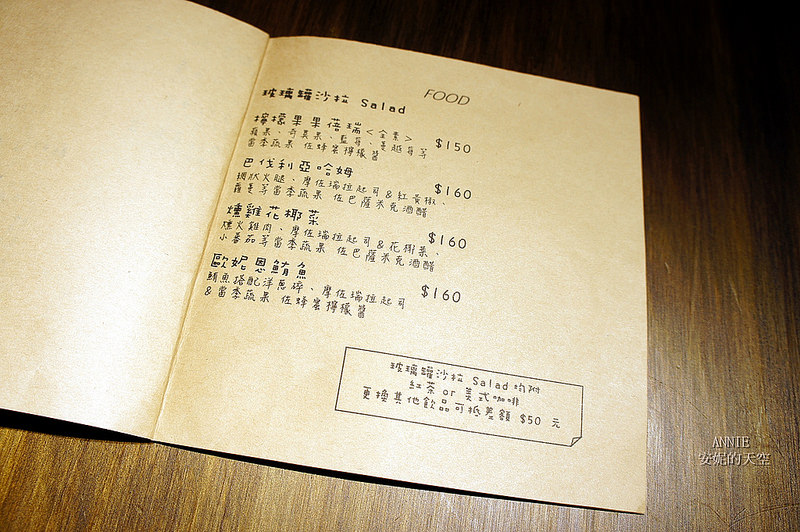 FOOD
玻璃罐沙拉 Salad
檸檬果果蓓瑞<全素>
蘋果、奇異果、藍莓、蔓越莓等
當季蔬果 佐蜂蜜檸檬醬
$150
巴伐利亞哈姆
捆狀火腿、摩佐瑞拉起司&紅黃椒、
蘿蔓等當季蔬果 佐巴薩米克酒醋
$160
燻雞花椰菜
燻火雞肉、摩佐瑞拉起司&花椰菜、
小番茄等當季蔬果 佐巴薩米克酒醋
$160
歐妮恩鮪魚
鮪魚搭配洋蔥碎、摩佐瑞拉起司
&當季蔬果 佐蜂蜜檸檬醬
$160
玻璃罐沙拉 Salad 均附
紅茶 or 美式咖啡
更換其他飲品可抵差額 $50 元
ANNIE
安妮的天空